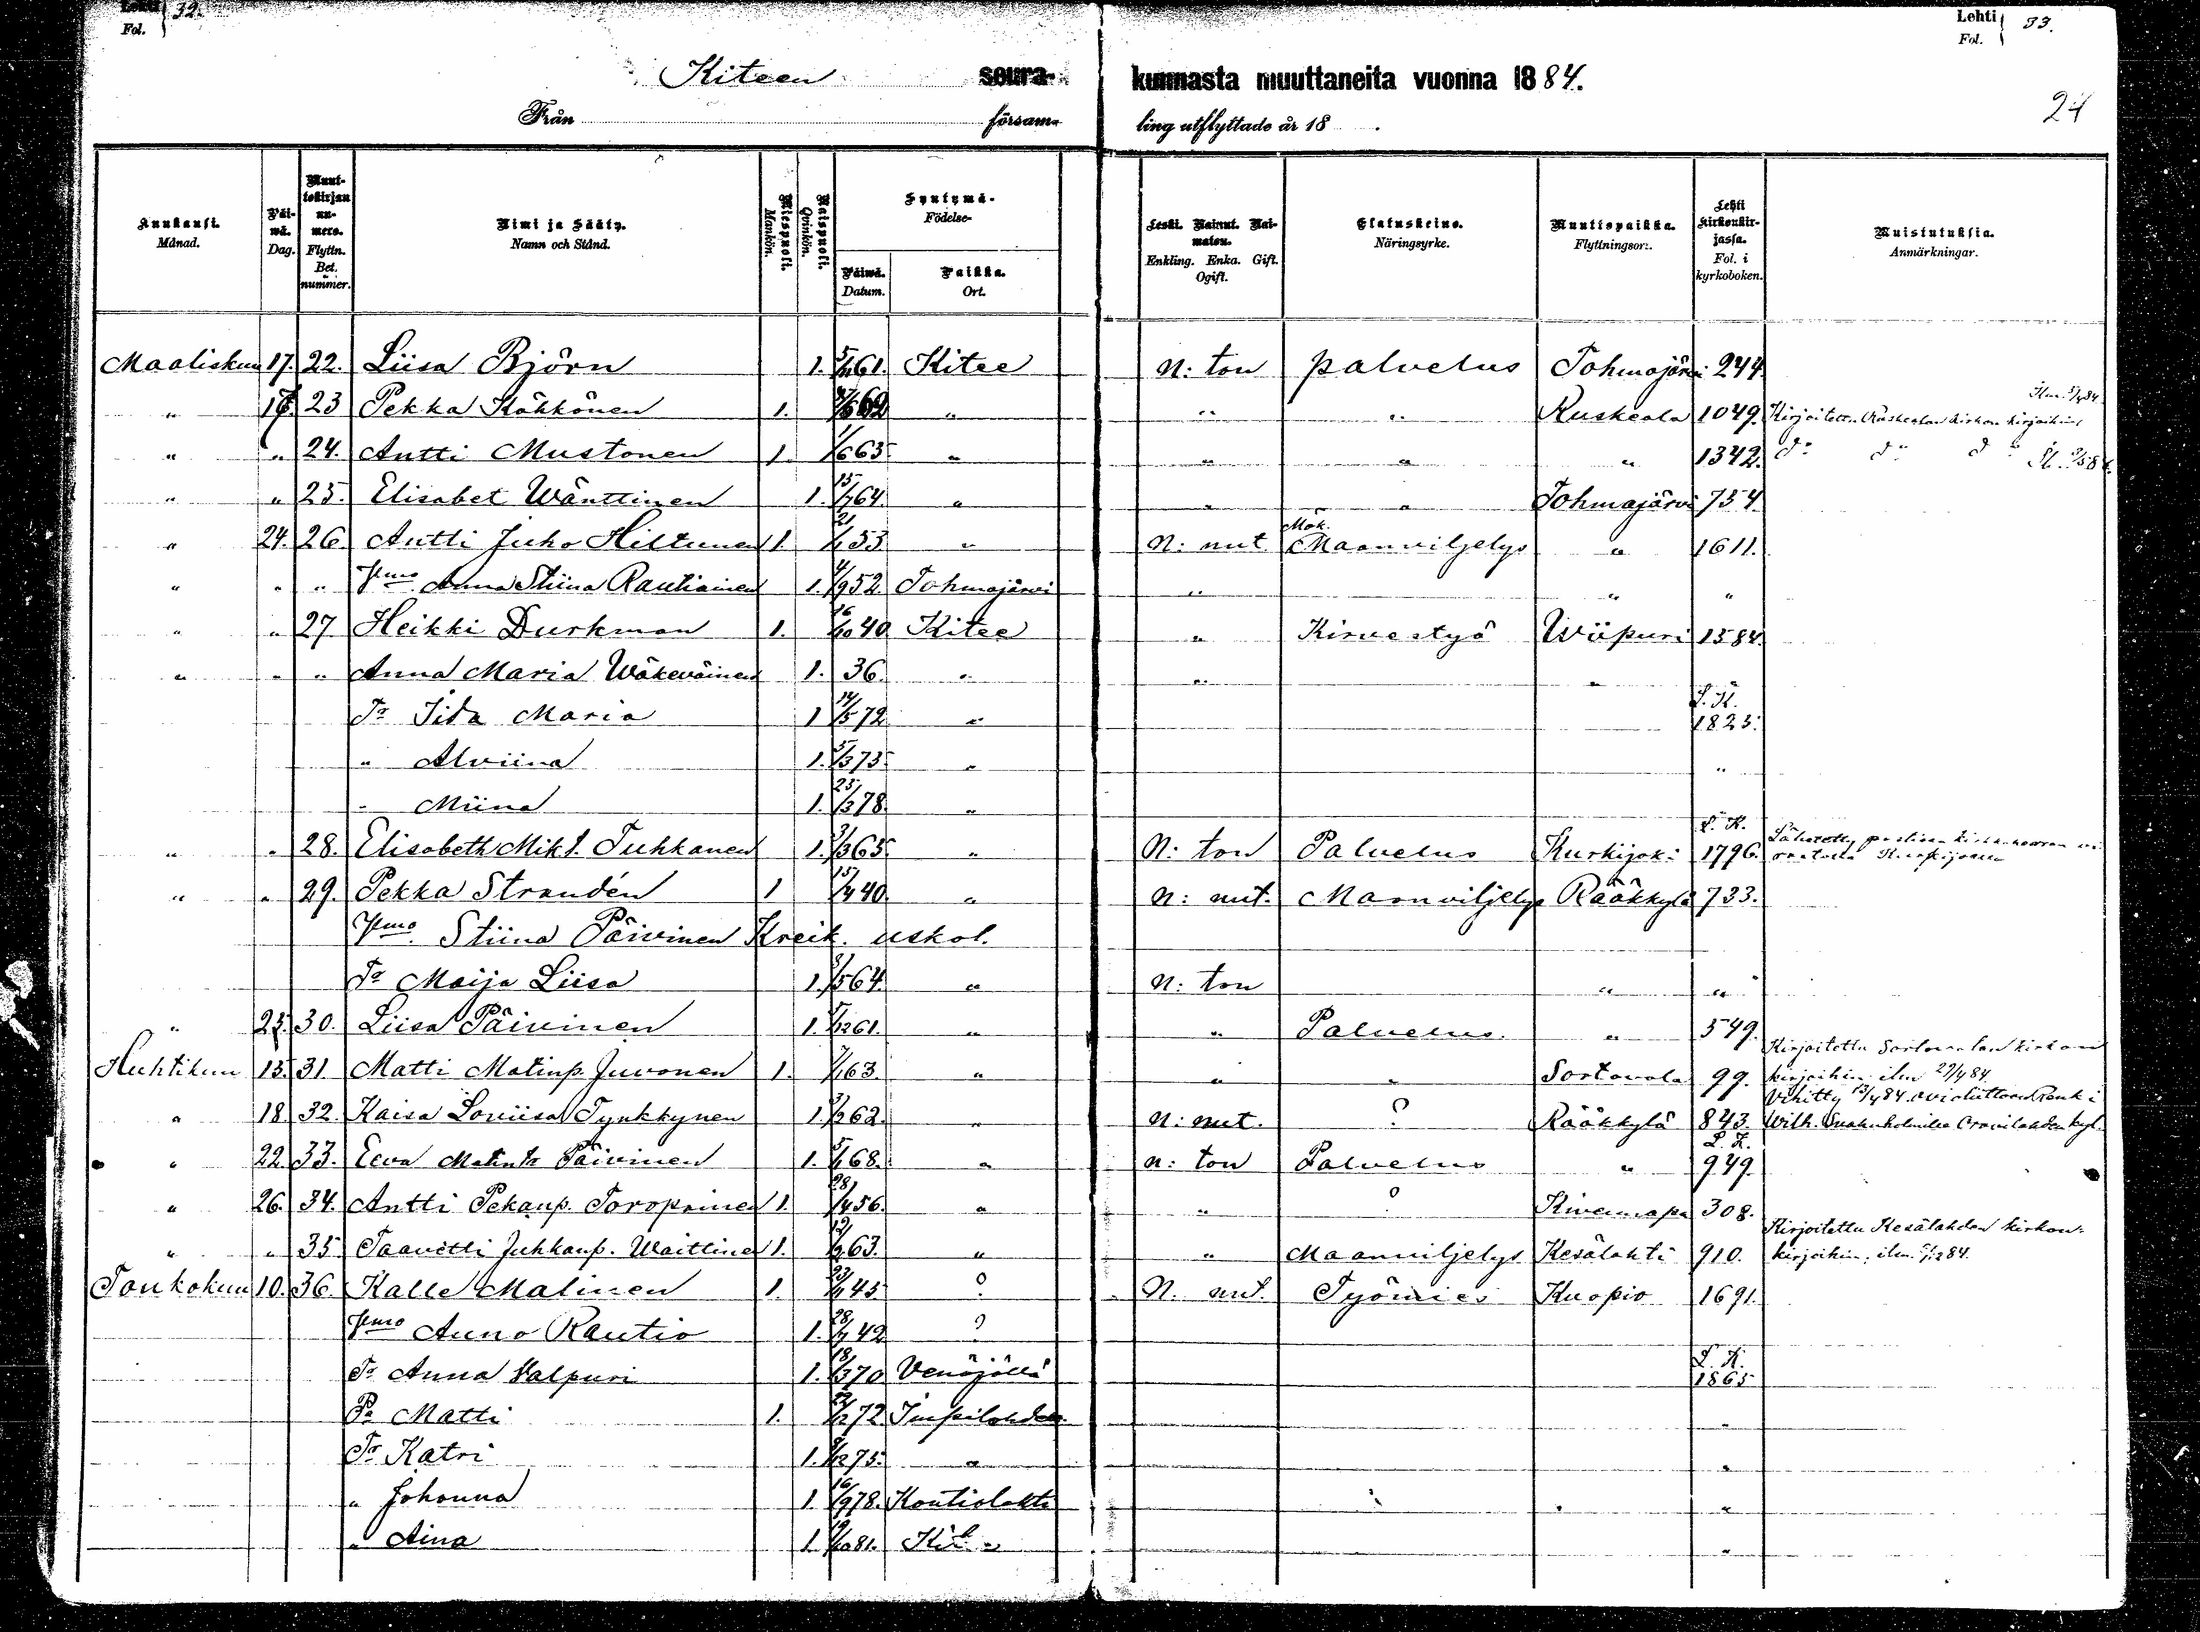 Lehti Fol. 32.
Lehti Fol. 33.
Kiteen seura- kunnasta muuttaneita vuonna 1884.
Från försam- ling utflyttade år 18 .
24
Kuukausi. Månad.
Päi- wä. Dag.
Muut- tokirjan nu- mero. Flyttn. Bet. nummer.
Nimi ja Sääty. Namn och Stånd.
Miespuoli. Mankön.
Naispuoli. Qvinkön.
Syntymä- Födelse-
Päiwä. Datum.
Paikka. Ort.
Leski. Nainut. Nai- maton. Enkling. Enka. Gift. Ogift.
Elatuskeino. Näringsyrke.
Muuttopaikka. Flyttningsort.
Lehti kirkonkir- jassa. Fol. i kyrkoboken.
Muistutuksia. Anmärkningar.
Maaliskuu 17. 22. Liisa Björn 1. 61. Kitee n: ton palvelus Tohmajärvi 244
" 17 23 Pekka Kökkönen 1. 62 " " " Ruskeala 1049. Kirjoitettu Ruskealan kirkon kirjoihin
" " 24. Antti Mustonen 1. 1/6 63 " " " " 1342. do do do
" " 25. Elisabet Wänttinen 1. 15/7 64. " " " Tohmajärvi 754.
" 24. 26. Antti Juho Hiltunen 1. 53 " n: nut Mök. Maanviljelys " 1611.
" " " Vmo Anna Stiina Rautiainen 1. 4/9 52. Tohmajärvi " " "
" " 27 Heikki Durkman 1. 16/10 40 Kitee " Kirvestyö Wiipuri 1584.
" " " Anna Maria Wäkeväinen 1. 36. " " " "
Tr Iida Maria 1 14/5 72 " L. K. 1823.
" Alviina 1. 5/3 75. " "
" Miina 1. 25/3 78. "
" " 28. Elisabeth Mikt. Tuhkanen 1. 3/3 65 " n: ton Palvelus Kurkijoki L. K. 1796.
" " 29. Pekka Strandén 1 15/4 40. " n: nut. Maanviljelys Rääkkylä 733.
Vmo Stiina Päivinen Kreik. uskol.
Tr Maija Liisa 1. 3/5 64. " n: ton " "
" 25. 30. Liisa Päivinen 1. 5/12 61. " " Palvelus. " 549.
Huhtikuu 15. 31 Matti Matinp. Juvonen 1. 63. " " " Sortavala 99. Kirjoitettu Sortavalan kirkon kirjoihin ilm 29/4 84.
" 18. 32. Kaisa Loviisa Tynkkynen 1. 3/2 62. " n: nut. ? Rääkkylä 843. Vihitty 13/4 84. avioliittoon Renki Wilh.
" 22. 33. Eeva Matint. Päivinen 1. 68. " n: ton Palvelus " L. K. 949.
" 26. 34. Antti Pekanp. Toropainen 1. 28/4 56. " " ? Kivennapa 308.
" " 35. Taavetti Juhkanp. Waittinen 1. 12/2 63. " " Maanviljelys Kesälahti 910. Kirjoitettu Kesälahden kirkon- kirjoihin, ilm. 84.
Toukokuu 10. 36. Kalle Malinen 1. 45 ? N. nut. Työmies Kuopio 1691.
Vmo Anna Rautio 1. 42 ?
Tr Anna Valpuri 1. 18/3 70 Venäjällä L. K. 1865
Pa Matti 1. 72 Impilahden "
Tr Katri 1. 75. " "
" Johanna 1. 16/9 78. Kontiolahti "
" Aina 1. 81. "